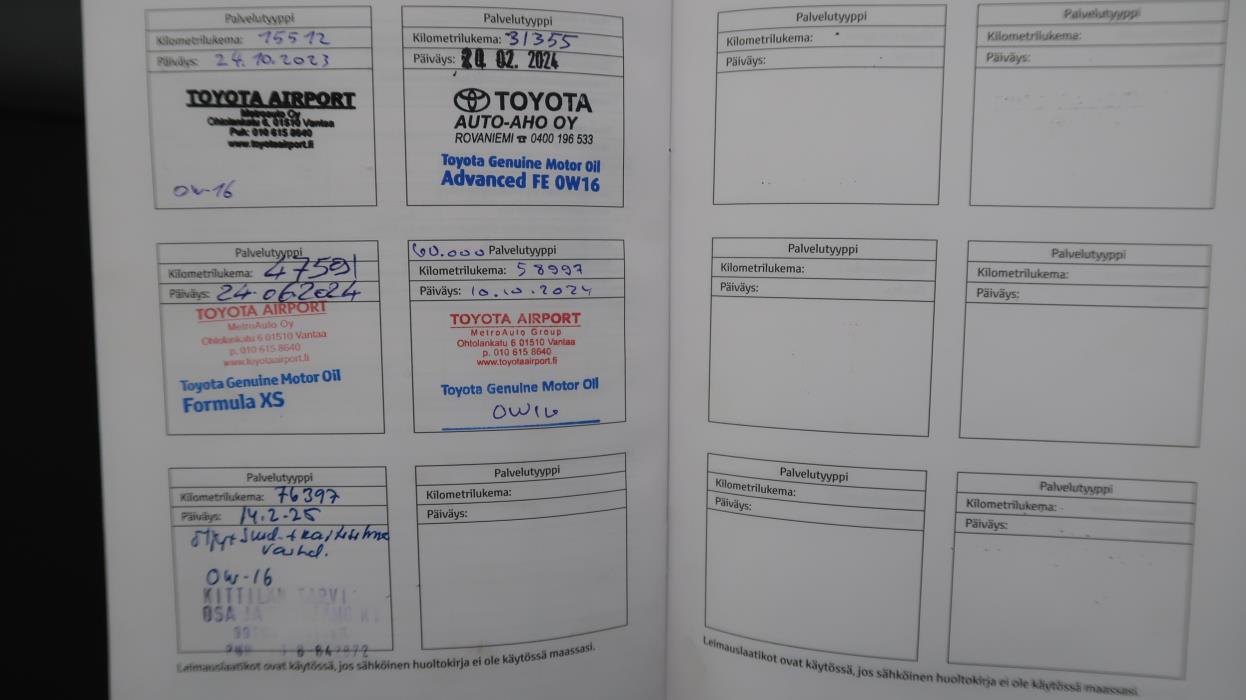 Palvelutyyppi
Kilometrilukema: 15512
Päiväys: 24.10.2023
TOYOTA AIRPORT
MetroAuto Oy
Ohtolankatu 6, 01510 Vantaa
Puh: 010 615 8640
www.toyotaairport.fi
0W-16
Palvelutyyppi
Kilometrilukema: 31355
Päiväys: 20. 02. 2024
TOYOTA
AUTO-AHO OY
ROVANIEMI ☎ 0400 196 533
Toyota Genuine Motor Oil
Advanced FE 0W16
Palvelutyyppi
Kilometrilukema: 47591
Päiväys: 24.062024
TOYOTA AIRPORT
MetroAuto Oy
Ohtolankatu 6 01510 Vantaa
p. 010 615 8640
www.toyotaairport.fi
Toyota Genuine Motor Oil
Formula XS
60.000 Palvelutyyppi
Kilometrilukema: 58997
Päiväys: 10.10.2024
TOYOTA AIRPORT
MetroAuto Group
Ohtolankatu 6 01510 Vantaa
p. 010 615 8640
www.toyotaairport.fi
Toyota Genuine Motor Oil
0W16
Palvelutyyppi
Kilometrilukema: 76397
Päiväys: 14.2-25
0W-16
KITTILÄN
OSA JA
Palvelutyyppi
Kilometrilukema:
Päiväys:
Leimauslaatikot ovat käytössä, jos sähköinen huoltokirja ei ole käytössä maassasi.
Palvelutyyppi
Kilometrilukema:
Päiväys:
Palvelutyyppi
Kilometrilukema:
Päiväys:
Palvelutyyppi
Kilometrilukema:
Päiväys:
Palvelutyyppi
Kilometrilukema:
Päiväys:
Palvelutyyppi
Kilometrilukema:
Päiväys:
Palvelutyyppi
Kilometrilukema:
Päiväys:
Leimauslaatikot ovat käytössä, jos sähköinen huoltokirja ei ole käytössä maassasi.